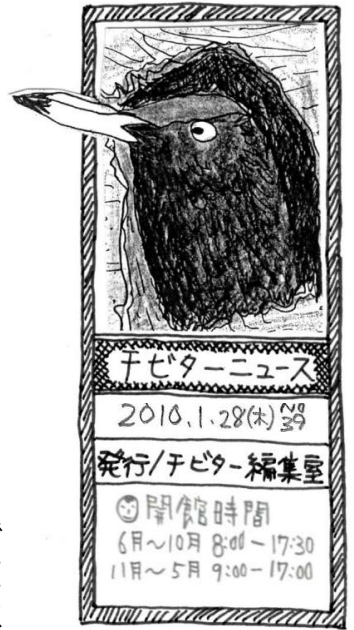 チビターニュース
2010.1.28(木) No 39
発行/チビター編集室
開館時間
6月～10月 8:00－17:30
11月～5月 9:00－17:00